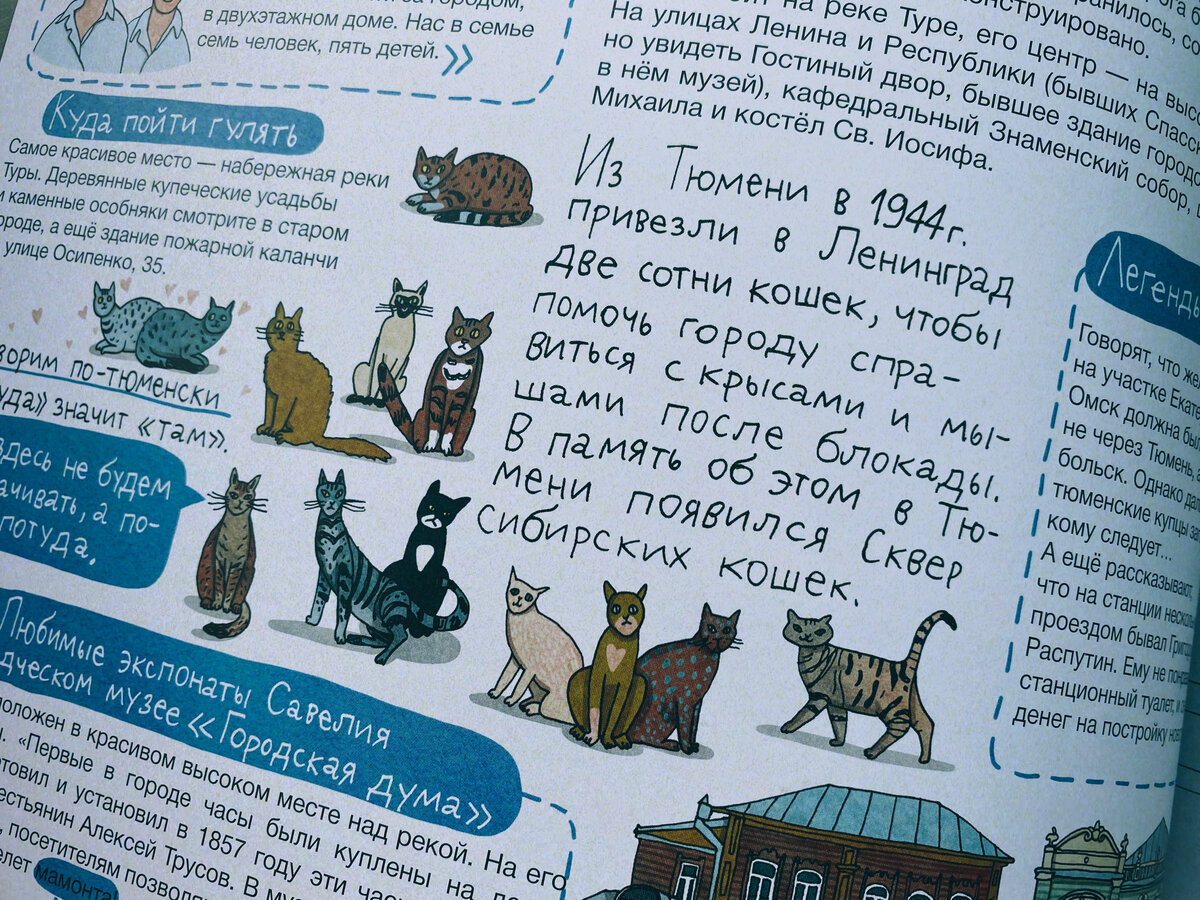 в двухэтажном доме. Нас в семье
семь человек, пять детей.
Куда пойти гулять
Самое красивое место — набережная реки
Туры. Деревянные купеческие усадьбы
и каменные особняки смотрите в старом
городе, а ещё здание пожарной каланчи
улице Осипенко, 35.
ворим по-тюменски
уда» значит «там».
здесь не будем
ачивать, а по-
потуда.
Любимые экспонаты Савелия
дческом музее «Городская дума»
положен в красивом высоком месте над рекой. На его
«Первые в городе часы были куплены на
отовил и установил в 1857 году эти
естьянин Алексей Трусов. В
посетителям
мамонта!
на реке Туре, его центр — на
На улицах Ленина и Республики (бывших
но увидеть Гостиный двор, бывшее здание
в нём музей), кафедральный Знаменский собор,
Михаила и костёл Св. Иосифа.
Из Тюмени в 1944г.
привезли в Ленинград
две сотни кошек, чтобы
помочь городу спра-
виться с крысами и мы-
шами после блокады.
В память об этом в Тю-
мени появился Сквер
сибирских кошек.
Легенды
Говорят, что
на участке
Омск должна
не через Тюмень,
больск. Однако
тюменские купцы
кому следует...
А ещё рассказывают,
что на станции
проездом бывал
Распутин. Ему не
станционный туалет, и
денег на постройку